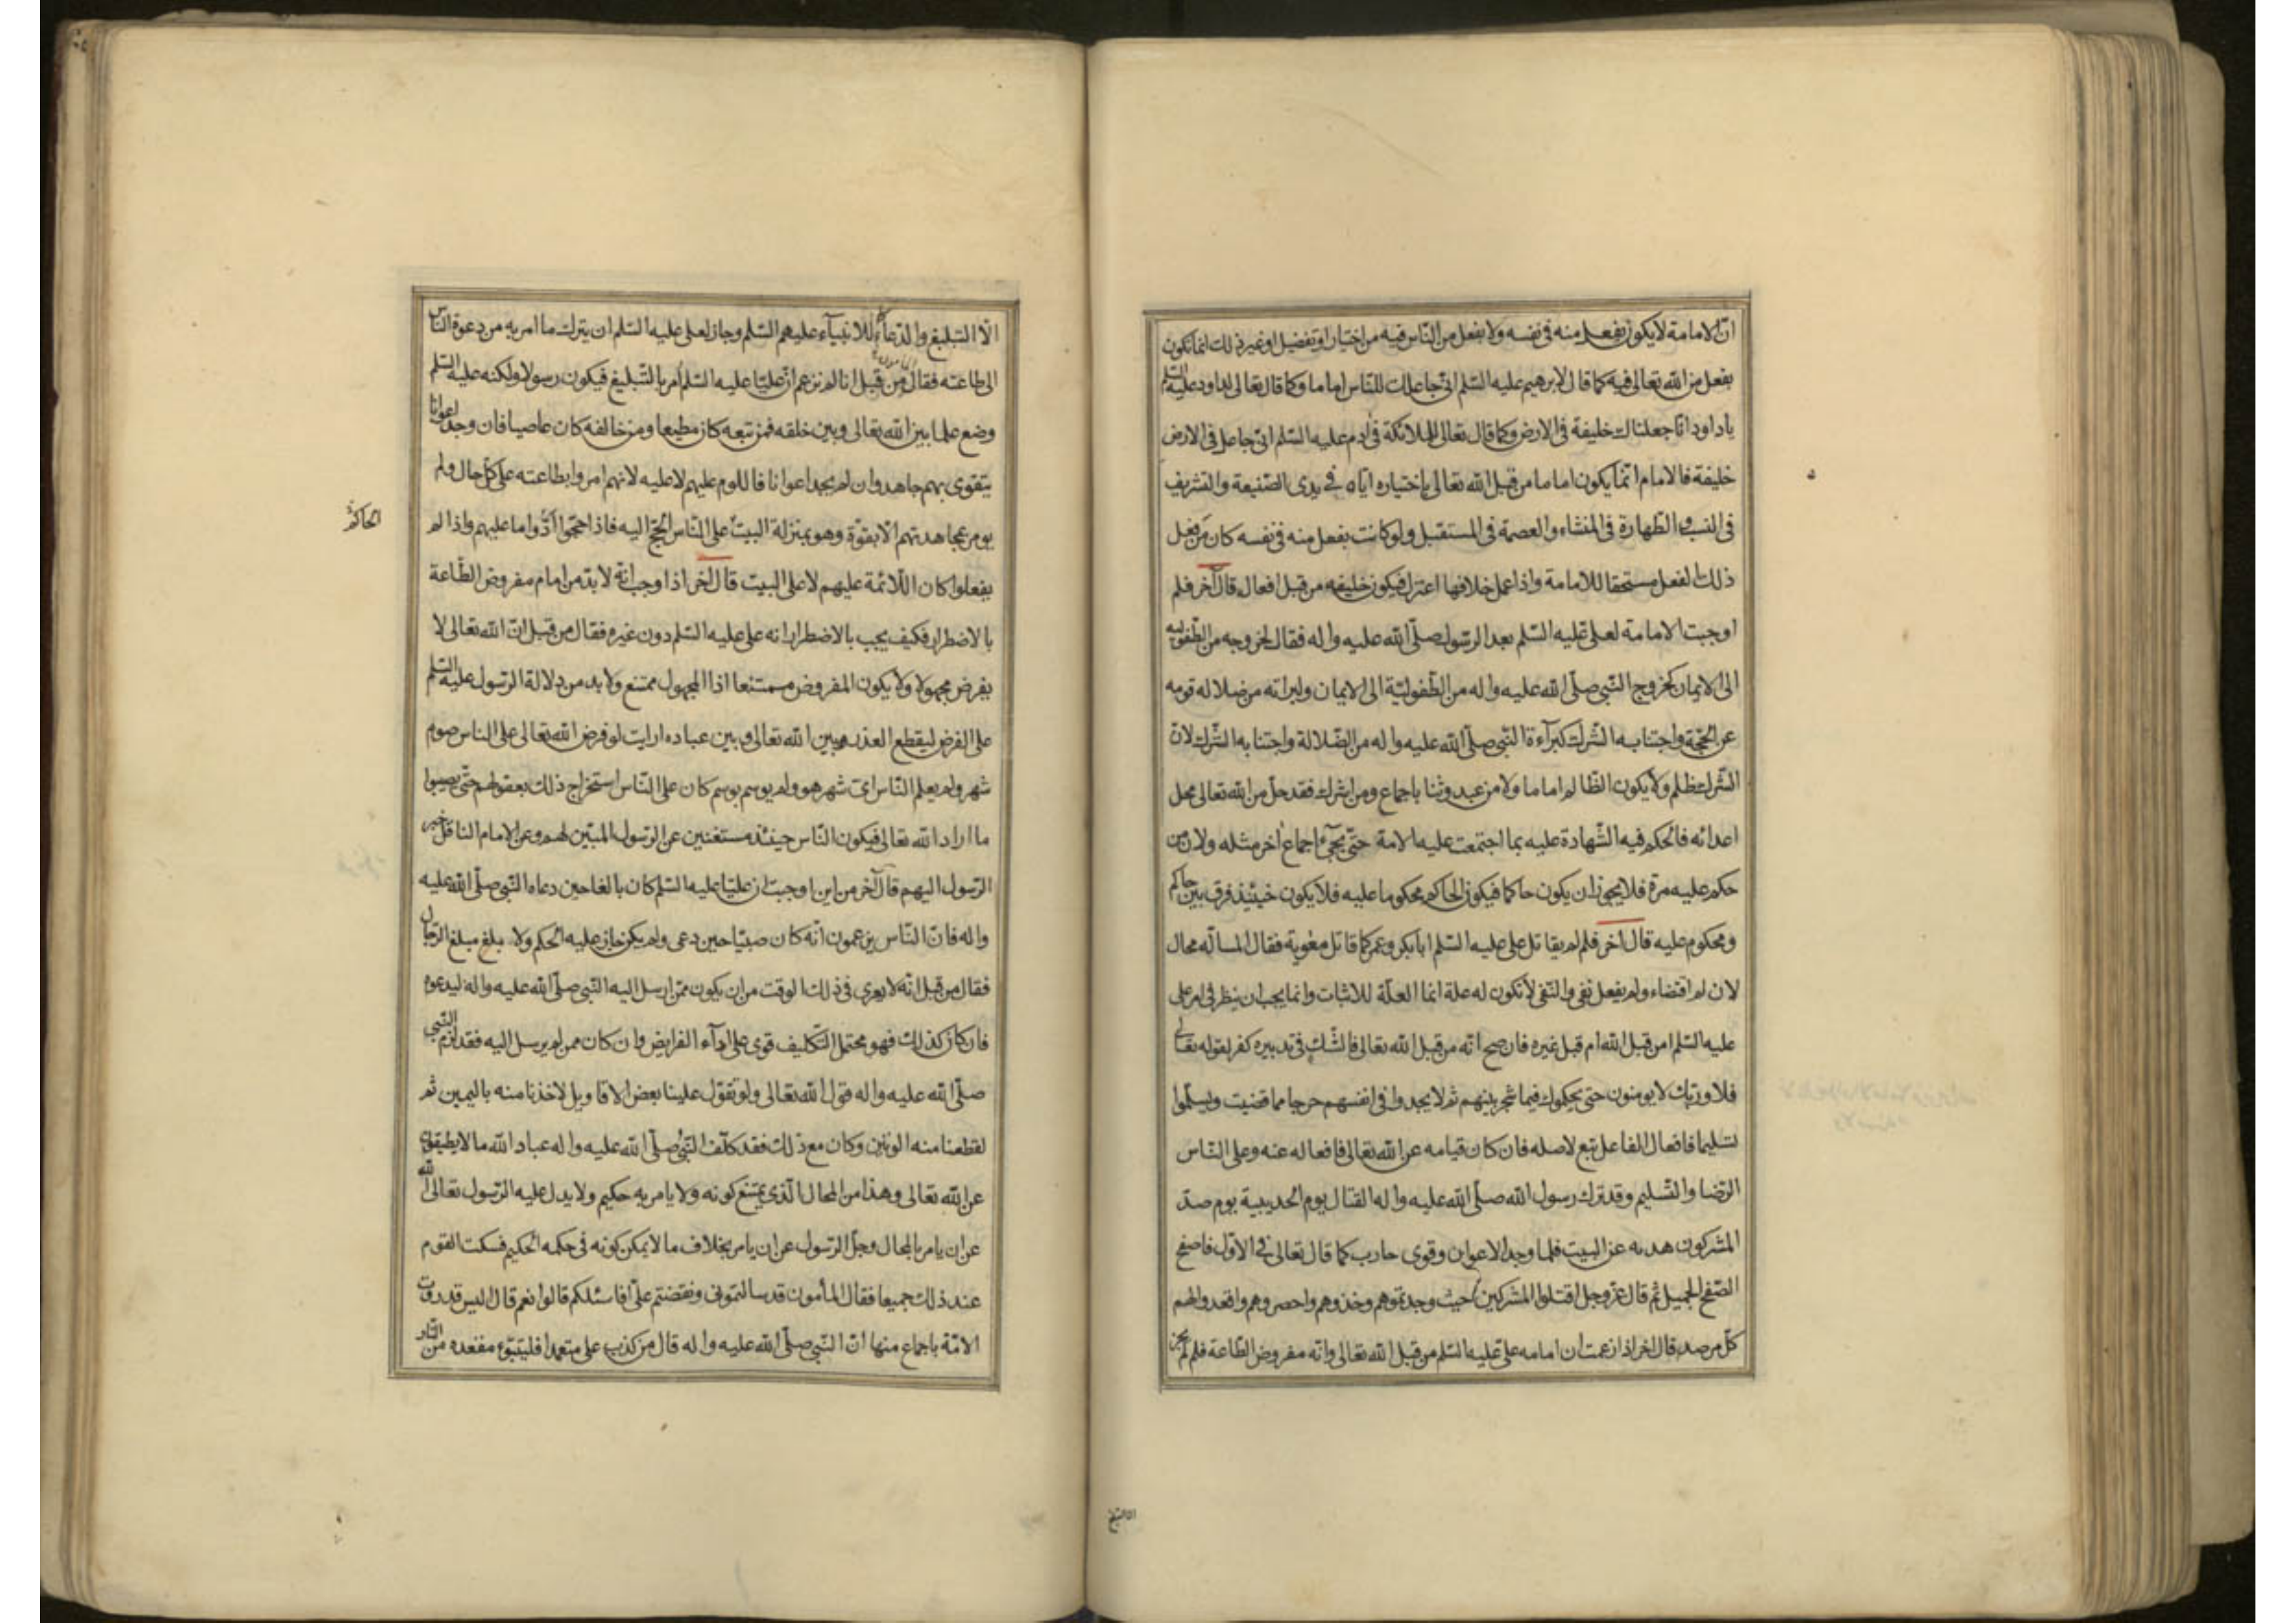 انّ الامامة لا يكون بفعل منه فى نفسه ولا بفعل من النّاس فيه من اختيار او تفضيل او غير ذلك انما تكون
بفعل من الله تعالى فيه كما قال لابرهيم عليه السّلم انّى جاعلك للنّاس اماما وكما قال تعالى لداود عليه السّلم
يا داود انّا جعلناك خليفة فى الارض وكما قال تعالى للملائكة فى ادم عليه السّلم انّى جاعل فى الارض
خليفة فالامام انّما يكون اماما من قبل الله تعالى باختياره ايّاه فى بدى الصّنيعة والتشريف
فى النسب والطّهارة فى المنشاء والعصمة فى المستقبل ولو كانت بفعل منه فى نفسه كان من فعل
ذلك الفعل مستحقا للامامة واذا عمل خلافها اعتزل فيكون خليفه من قبل افعاله قال آخر فلم
اوجبت الامامة لعلى عليه السّلم بعد الرّسول صلّى الله عليه واله فقال لخروجه من الطّفوليه
الى الايمان كخروج النّبى صلّى الله عليه واله من الطّفوليّة الى الايمان ولبرائته من ضلاله قومه
عن الحجّة واجتنابه الشّرك كبرآءة النّبى صلّى الله عليه واله من الضّلالة واجتنابه الشّرك لانّ
الشّرك ظلم ولا يكون الظّالم اماما ولا من عبد وثنا باجماع ومن اشرك فقد حلّ من الله تعالى محل
اعدائه فالحكم فيه الشّهادة عليه بما اجتمعت عليه الامة حتّى يجىء اجماع اخر مثله ولان من
حكم عليه مرة فلا يجوز ان يكون حاكما فيكون الحاكم محكوما عليه فلا يكون حينئذ فرق بين حاكم
ومحكوم عليه قال اخر فلم لم يقاتل على عليه السّلم ابا بكر وعمر كما قاتل معوية فقال المسالة محال
لان لم اقتضاء ولم يفعل نفى والنّفى لا تكون له علة انما العلّة للاثبات وانما يجب ان ينظر فى امر على
عليه السّلم امن قبل الله ام قبل غيره فان صح انه من قبل الله تعالى فالشّك فى تدبيره كفر لقوله تعالى
فلا وربّك لا يومنون حتى يحكموك فيما شجر بينهم ثم لا يجدوا فى انفسهم حرجا مما قضيت ويسلّموا
تسليما فافعال الفاعل تبع لاصله فان كان قيامه عن الله تعالى فافعاله عنه وعلى النّاس
الرّضا والتّسليم وقد ترك رسول الله صلّى الله عليه واله القتال يوم الحديبية يوم صدّ
المشركون هديه عن البيت فلما وجد الاعوان وقوى حارب كما قال تعالى فى الاوّل فاصفح
الصّفح الجميل ثم قال عزّ وجل اقتلوا المشركين حيث وجدتموهم وخذوهم واحصروهم واقعدوا لهم
كلّ مرصد قال اخر اذا زعمت ان امامه على عليه السّلم من قبل الله تعالى وانّه مفروض الطّاعة فلم لم يجز
الا التبليغ
الّا التبليغ والدّعاء للانبيآء عليهم السّلم وجاز لعلى عليه السّلم ان يترك ما امر به من دعوة النّاس
الى طاعته فقال المامون من قبل انا لم نزعم انّ عليّا عليه السّلم أمر بالتّبليغ فيكون رسولا ولكنه عليه السّلم
وضع علما بين الله تعالى وبين خلقه فمن تبعه كان مطيعا ومن خالفه كان عاصيا فان وجد اعوانا
يتقوى بهم جاهد وان لم يجد اعوانا فاللوم عليهم لا عليه لانهم امروا بطاعته على كلّ حال ولم
يومر بمجاهدتهم الّا بقوّة وهو بمنزلة البيت على النّاس الحجّ اليه فاذا حجّوا ادّوا ما عليهم واذا لم
يفعلوا كان اللّائمة عليهم لا على البيت قال اخر اذا وجب انّه لا بدّ من امام مفروض الطّاعة
بالاضطرار فكيف يجب بالاضطرار انه على عليه السّلم دون غيره فقال من قبل انّ الله تعالى لا
يفرض مجهولا ولا يكون المفروض ممتنعا اذا المجهول ممتنع ولا بد من دلالة الرّسول عليه السّلم
على الفرض ليقطع العذر بين الله تعالى وبين عباده ارايت لو فرض الله تعالى على الناس صوم
شهر ولم يعلم النّاس اىّ شهر هو ولم يوسم بوسم كان على النّاس استخراج ذلك بعقولهم حتّى يصيبوا
ما اراد الله تعالى فيكون النّاس حينئذ مستغنين عن الرّسول المبيّن لهم وعن الامام الناقل خبر
الرّسول اليهم قال آخر من اين اوجبت ان عليّا عليه السّلم كان بالغا حين دعاه النّبى صلّى الله عليه
واله فانّ النّاس يزعمون انّه كان صبيّا حين دعى ولم يكن جاز عليه الحكم ولا بلغ مبلغ الرّجال
فقال من قبل انّه لا يعرى فى ذلك الوقت من ان يكون ممّن ارسل اليه النّبى صلّى الله عليه واله ليدعوه
فان كان كذلك فهو محتمل التّكليف قوى على ادآء الفرايض وان كان ممن لم يرسل اليه فقد لزم النّبى
صلّى الله عليه واله قول الله تعالى ولو تقوّل علينا بعض الاقاويل لاخذنا منه باليمين ثم
لقطعنا منه الوتين وكان مع ذلك فقد كلّف النّبى صلّى الله عليه واله عباد الله ما لا يطيقون
عن الله تعالى وهذا من المحال الّذى يمتنع كونه ولا يامر به حكيم ولا يدل عليه الرّسول تعالى الله
عن ان يامر بالمحال وجلّ الرّسول عن ان يامر بخلاف ما لا يمكن كونه فى حكمه الحكيم فسكت القوم
عند ذلك جميعا فقال المأمون قد سالتمونى ونقضتم علىّ افاسئلكم قالوا نعم قال اليس قد روت
الامّة باجماع منها انّ النّبى صلّى الله عليه واله قال من كذب على متعمدا فليتبوّء مقعده من النّار